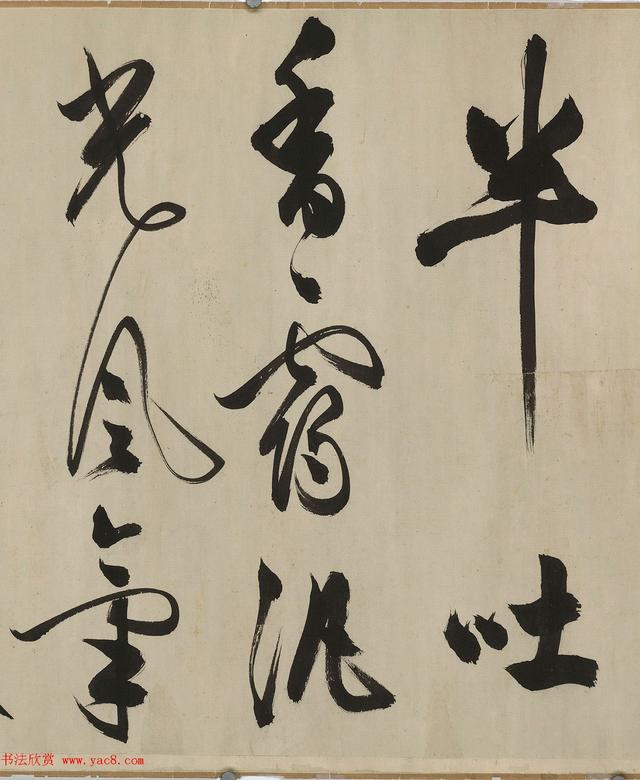 半吐
香泛
光風氣
书法欣赏 www.yac8.com